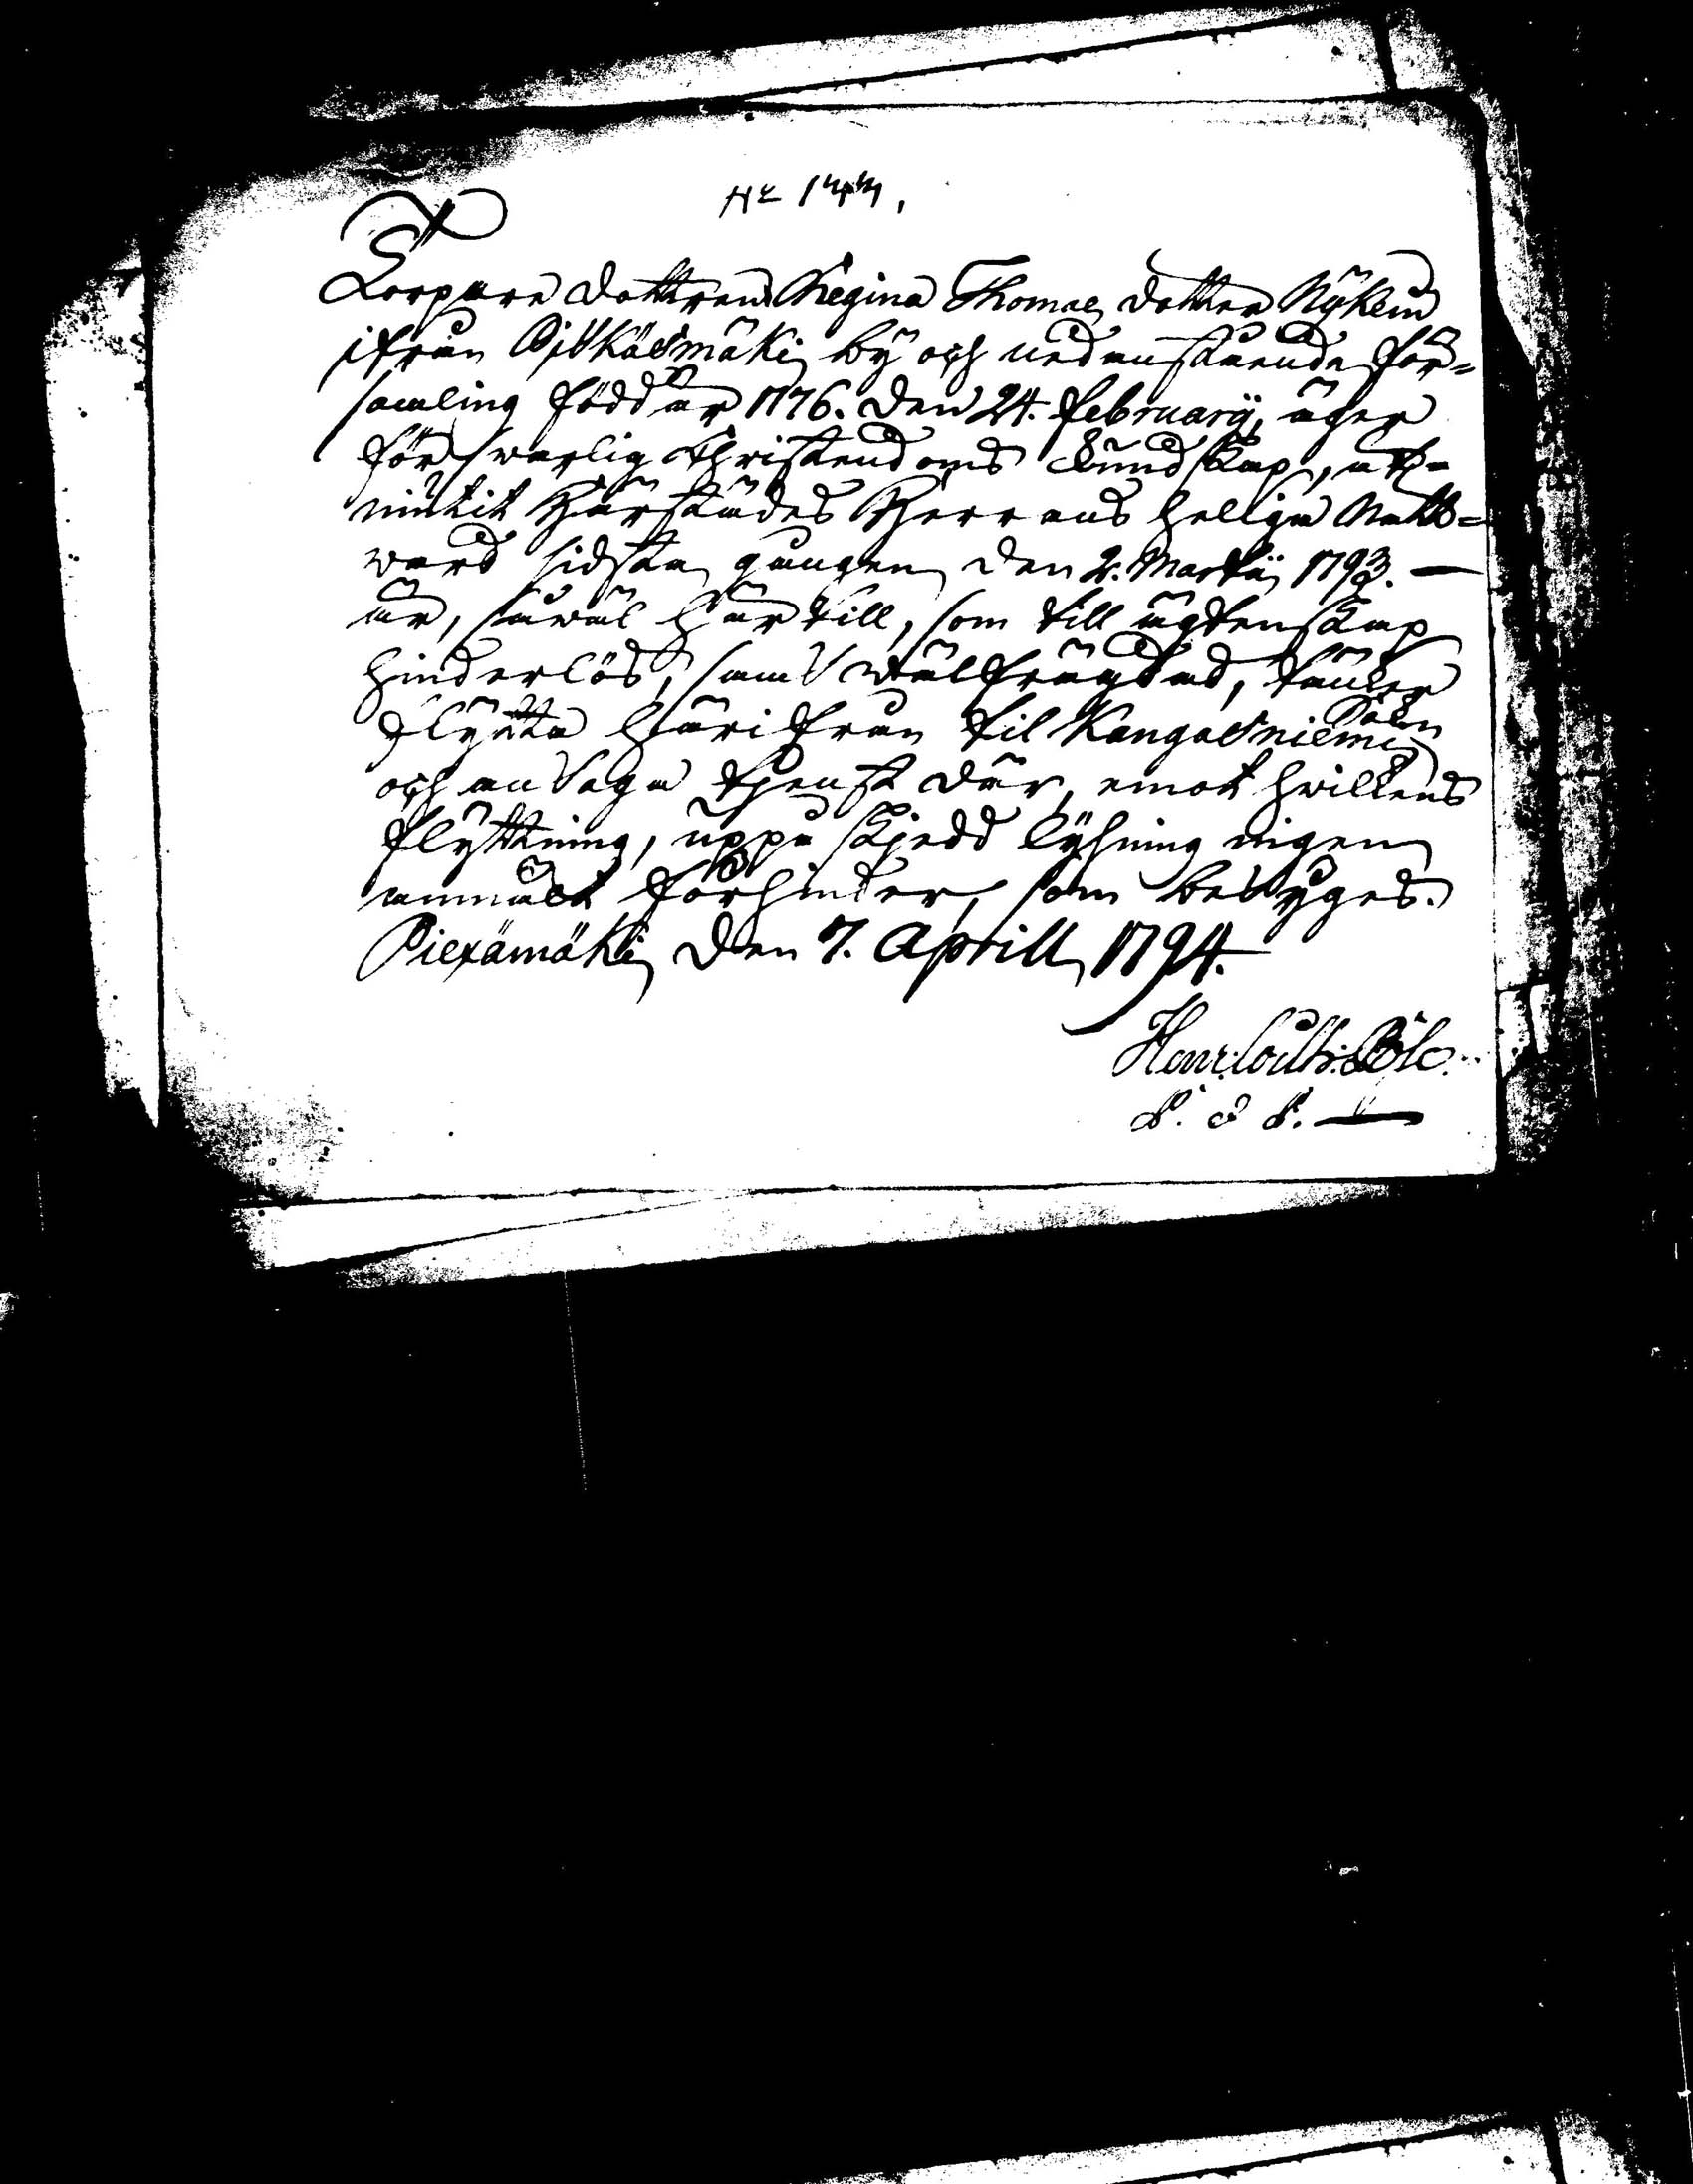 Torpare dottren Regina Thomae dotter Nykein
ifrån Pitkäsmäki by och nedanstående för=
samling född år 1776. den 24. februarij, äger
förswarlig Christendoms kundskap, uth=
niutit härstädes Herrans heliga Natt=
ward sidsta gången den 2. Martii 1793. —
är, såwäl här till, som till ägtenskap
hinderlös, samt wälfrägdad, tänker
flytta härifrån til Kangasniemi Sokn
och antaga tjenst där, emot hwilkens
flyttning, uppå skjedd lysning ingen
anmält förhinder, som betyges.
Piexämäki den 7. Aprill 1794.
Henr: